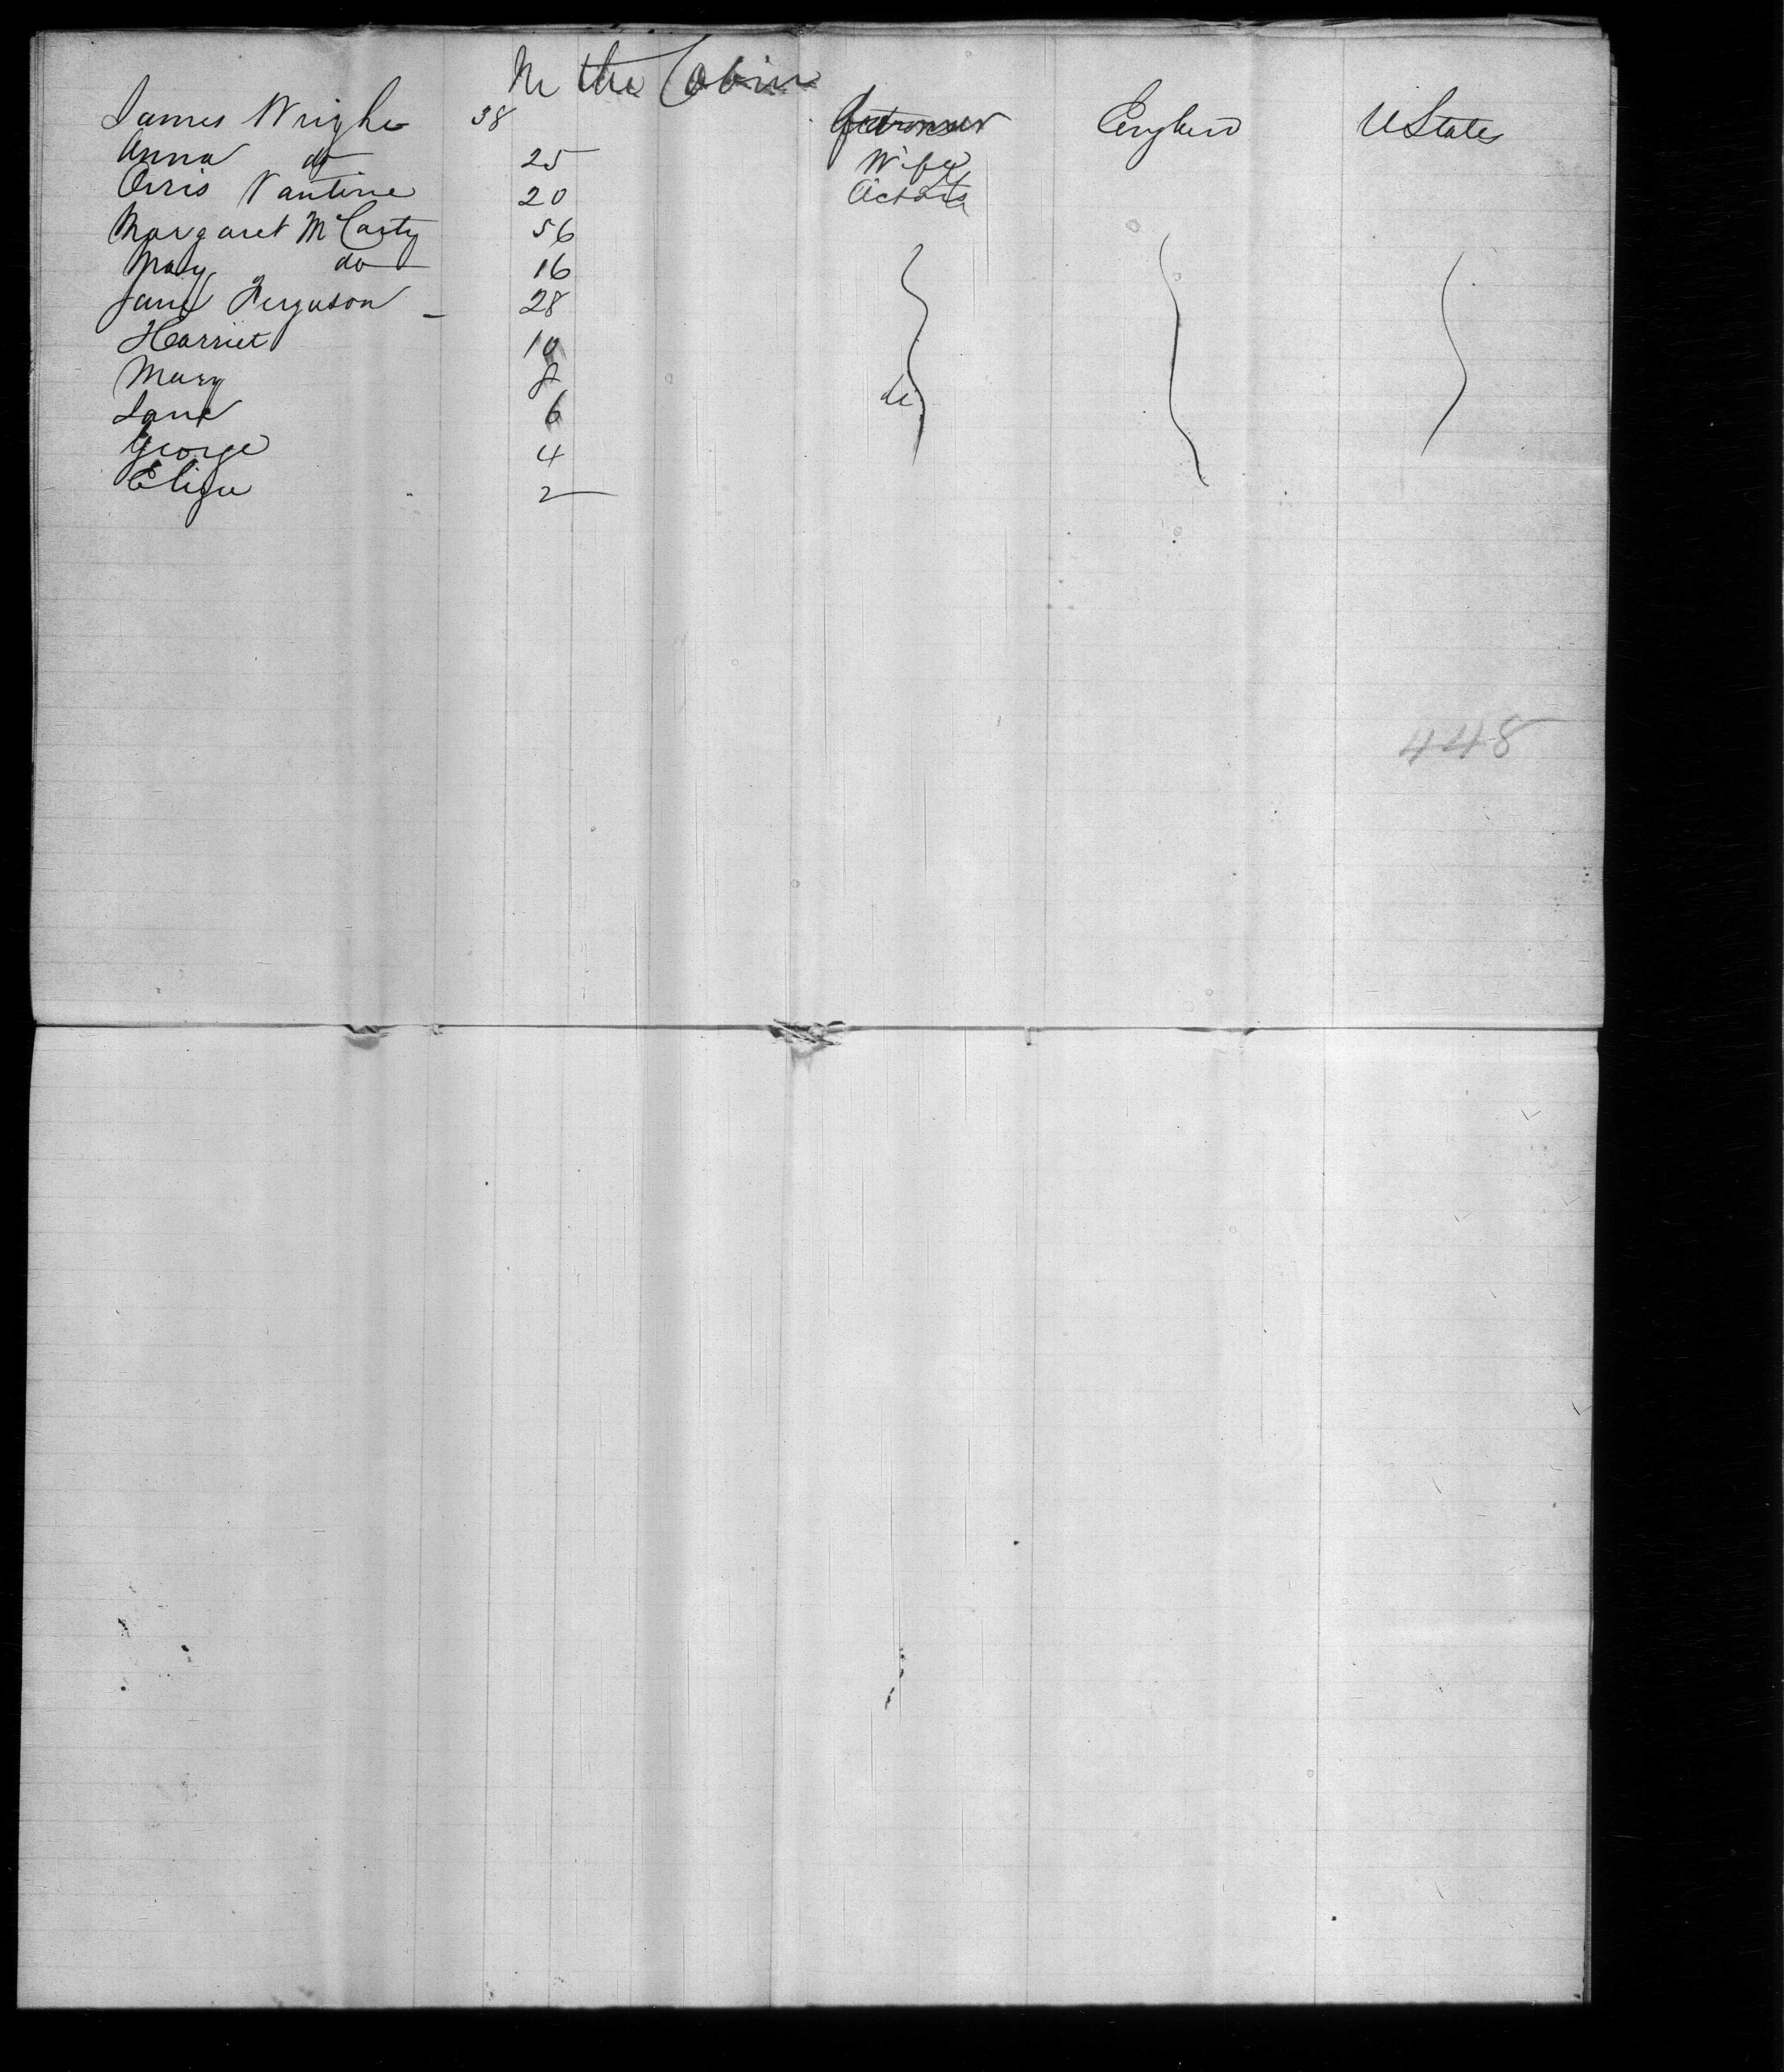 In the Cabin
James Wright 38 England U States
Anna do 25 Wife
Orris Vantine 20
Margaret McCarty 56
Mary do 16
Jane Ferguson - 28
Harriet 10
Mary 8
Jane 6
George 4
Eliza 2
448